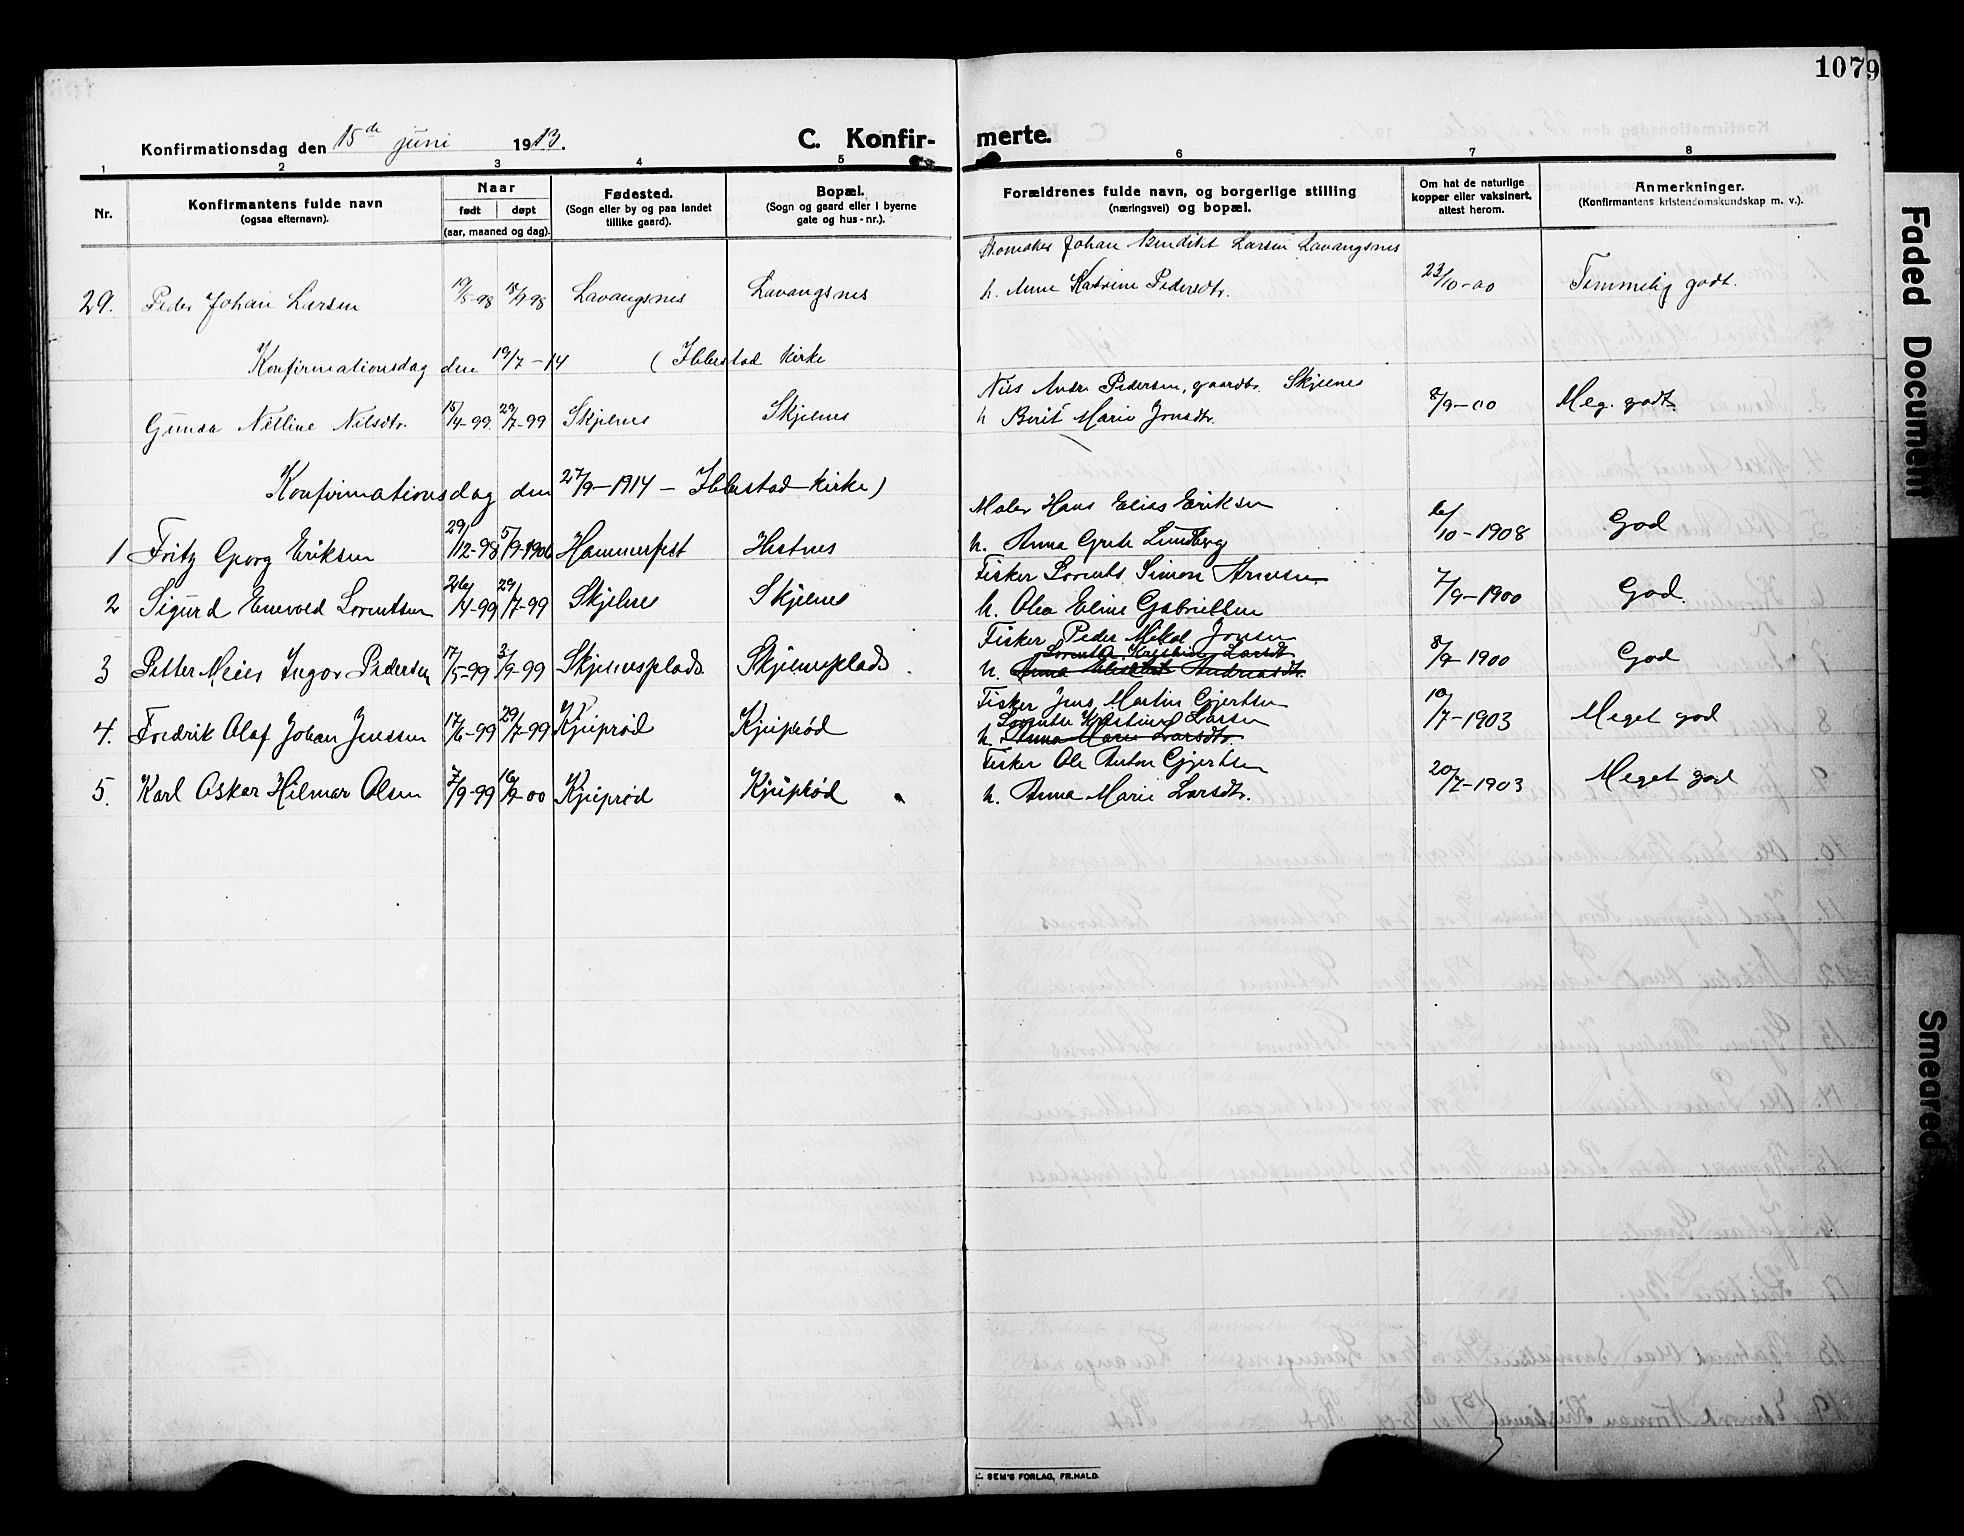 107
9
Konfirmationsdag den 15de juni 1913.
C. Konfirmerte.
1 2 3 4 5 6 7 8
Nr.
Konfirmantens fulde navn
(ogsaa efternavn).
Naar
født døpt
(aar, maaned og dag).
Fødested.
(Sogn eller by og paa landet
tillike gaard).
Bopæl.
(Sogn og gaard eller i byerne
gate og hus-nr.).
Forældrenes fulde navn, og borgerlige stilling
(næringsvei) og bopæl.
Om hat de naturlige
kopper eller vaksinert,
attest herom.
Anmerkninger.
(Konfirmantens kristendomskundskap m. v.).
Johan Bendikt Larsen Lavangsnes
29. Peder Johan Larsen 19/5-98 Lavangsnes Lavangsnes h. Anne Katrine Pedersdtr. 23/10-00 Temmelig godt.
Konfirmationsdag den 19/7-14 (Ibbestad Kirke
Nils Andr. Pedersen, gaardbr. Skjelnes
Gunda Nelline Nilsdtr. 15/4-99 29/7-99 Skjelnes Skjelnes h Berit Marie Jonsdtr. 8/9-00 Meg. godt.
Konfirmationsdag den 27/9-1914 - Ibbestad Kirke)
Maler Hans Elias Eriksen
1 Fritz Georg Eriksen 29/12-98 5/9-1906 Hammerfest Hestnes h. Anna Grete Lundberg 6/10-1908 God
Fisker Lorents Simon Arnesen
2 Sigurd Enevold Lorentsen 26/4-99 29/7-99 Skjelnes Skjelnes h. Olea Eline Gabrielsen 7/9-1900 God.
Fisker Peder Mikal Jonsen
3 Petter Meier Ingor Pedersen 17/5-99 3/9-99 Skjelnesplads Skjelnesplads h. Anna Elisabet Andreasdtr. 8/9-1900 God
Fisker Jens Martin Gjertsen
Lorentse Kristine Larsen
4. Fredrik Olaf Johan Jenssen 17/6-99 29/7-99 Kjeiprød Kjeiprød h. Anna Marie Larsdtr. 10/7-1903 Meget god
Fisker Ole Anton Gjertsen
5. Karl Oskar Hilmar Olsen 7/9-99 16/9-00 Kjeiprød Kjeiprød h. Anna Marie Larsdtr. 20/7-1903 Meget god
SEM'S FORLAG, FR.HALD.
Faded Document
Smeared